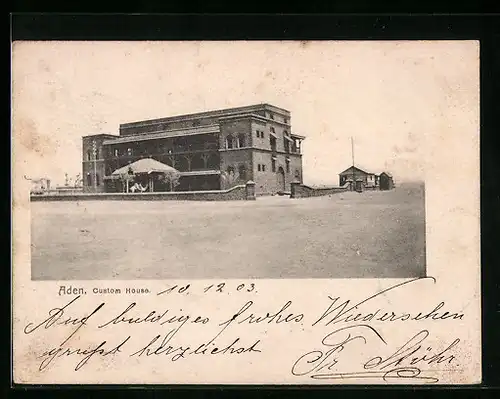 Aden, Custom House. 10.12.03
Auf baldiges frohes Wiedersehen
grüsst herzlichst
Fr. Stöhr